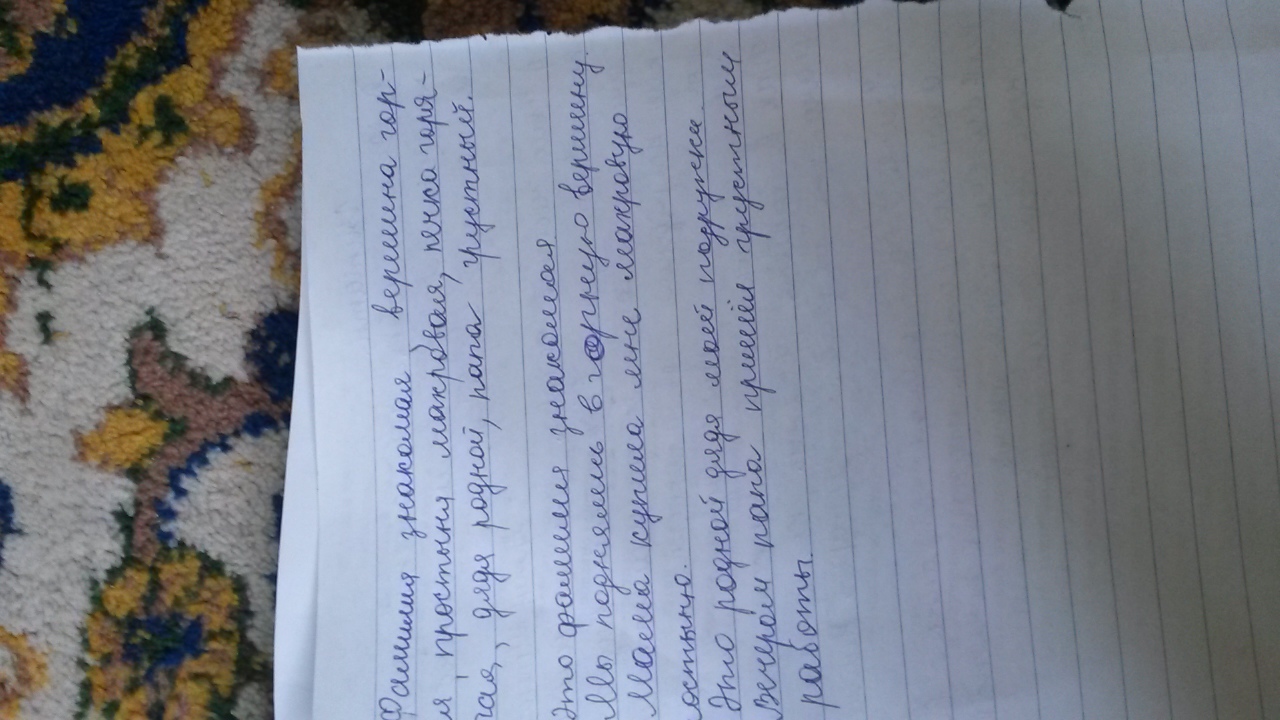 Фамилия знакомая вершина гор-
ая простыня махровая, печка горя-
чая, дядя родной, папа грустный.
Это фамилия знакомая
Мы поднялись в горную вершину.
Мама купила мне махровую
ростыню.
Это родной дядя моей подружки.
Вечером папа пришёл грустным
работы.